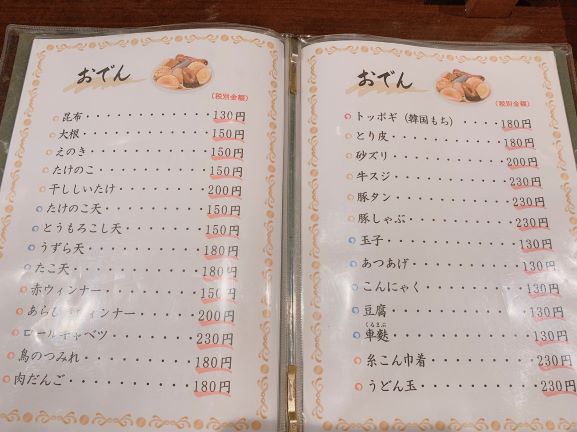 おでん
(税別金額)
昆布・・・・・・・・・・・・130円
大根・・・・・・・・・・・・150円
えのき・・・・・・・・・・・150円
たけのこ・・・・・・・・・・150円
干ししいたけ・・・・・・・・200円
たけのこ天・・・・・・・・・150円
とうもろこし天・・・・・・・150円
うずら天・・・・・・・・・・180円
たこ天・・・・・・・・・・・180円
赤ウィンナー・・・・・・・・150円
あらびきウィンナー・・・・・200円
ロールキャベツ・・・・・・・230円
鳥のつみれ・・・・・・・・・180円
肉だんご・・・・・・・・・・180円
おでん
(税別金額)
トッポギ(韓国もち)・・・・180円
とり皮・・・・・・・・・・・180円
砂ズリ・・・・・・・・・・・200円
牛スジ・・・・・・・・・・・230円
豚タン・・・・・・・・・・・230円
豚しゃぶ・・・・・・・・・・230円
玉子・・・・・・・・・・・・130円
あつあげ・・・・・・・・・・130円
こんにゃく・・・・・・・・・130円
豆腐・・・・・・・・・・・・130円
くるまぶ
車麩・・・・・・・・・・・・130円
糸こん巾着・・・・・・・・・230円
うどん玉・・・・・・・・・・230円